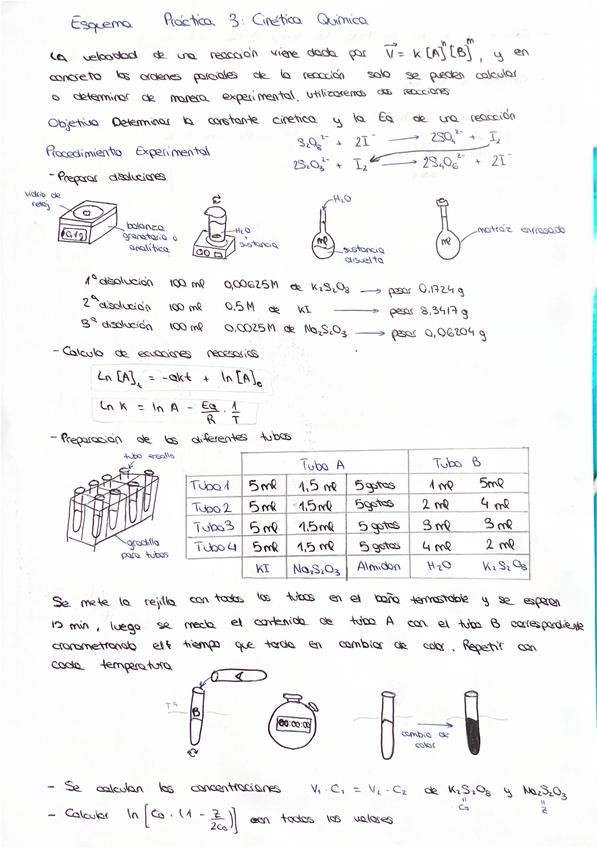 Esquema Práctica 3: Cinética Química
La velocidad de una reacción viene dada por V⃗ = K [A]ⁿ [B]ᵐ, y en
concreto los ordenes parciales de la reacción solo se pueden calcular
o determinar de manera experimental. Utilizaremos dos reacciones
Objetivo Determinar la constante cinetica y la Ea de una reacción
S₂O₈²⁻ + 2I⁻ → 2SO₄²⁻ + I₂
Procedimiento Experimental
2S₂O₃²⁻ + I₂ → 2S₄O₆²⁻ + 2I⁻
- Preparar disoluciones
vidrio de
reloj
0,1g
balanza
granataria o
analítica
H₂O
sustancia
H₂O
ml
sustancia
disuelta
ml
matraz enrasado
1ª disolución 100 ml 0,00625M de K₂S₂O₈ → pesar 0,1724 g
2ª disolución 100 ml 0.5 M de KI → pesar 8,3417 g
3ª disolución 100 ml 0,0025M de Na₂S₂O₃ → pesar 0,06204 g
- Calculo de ecuaciones necesarias
Ln [A]ₜ = -akt + ln [A]₀
Ln K = ln A - Ea/R · 1/T
- Preparación de los diferentes tubos
tubo ensallo
gradilla
para tubos
Tubo A Tubo B
Tubo 1 5 ml 1,5 ml 5 gotas 1 ml 5 ml
Tubo 2 5 ml 1,5 ml 5 gotas 2 ml 4 ml
Tubo 3 5 ml 1,5 ml 5 gotas 3 ml 3 ml
Tubo 4 5 ml 1,5 ml 5 gotas 4 ml 2 ml
KI Na₂S₂O₃ Almidón H₂O K₂S₂O₈
Se mete la rejilla con todos los tubos en el baño termostable y se esperan
15 min, luego se mecla el contenido de tubo A con el tubo B correspondiente
cronometrando el tiempo que tarda en cambiar de color. Repetir con
cada temperatura
A
Tª
B
00:00:00
cambio de
color
- Se calculan las concentraciones V₁·C₁ = V₂·C₂ de K₂S₂O₈ y Na₂S₂O₃
= =
C₀ Z
- Calcular ln [C₀ · (1 - Z/2C₀)] con todos los valores